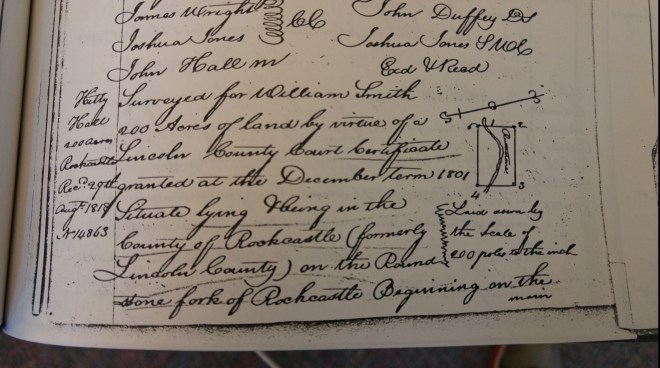 James Wright
Joshua Jones
John Hall m
CC
John Duffey DS
Joshua Jones SMC
Exd & Read
Kitty
Hall
200 acres
Rockcastle
Recd. 29th
Augt. 1818
No 14863
Surveyed for William Smith
200 Acres of land by virtue of a
Lincoln County Court Certificate
granted at the December term 1801
Situate lying & being in the
County of Rockcastle (formerly
Lincoln County) on the Round
stone fork of Rockcastle Beginning on the
main
S
S
1
2
3
4
Laid down by
the scale of
200 poles to the inch